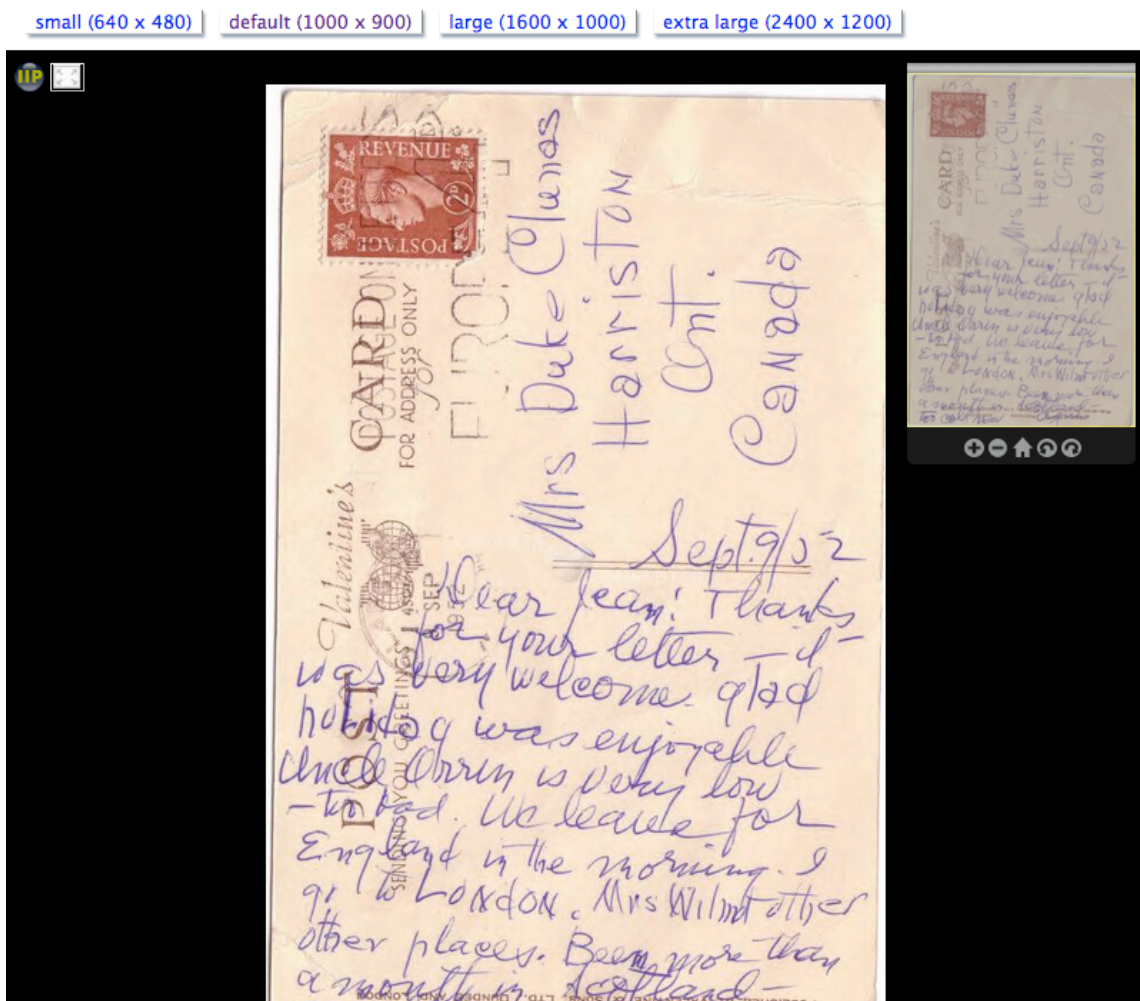 small (640 x 480) default (1000 x 900) large (1600 x 1000) extra large (2400 x 1200)
IIP
REVENUE
2D
POSTAGE
Valentine's
POST CARD
FOR ADDRESS ONLY
SENDING YOU GREETINGS
EUROPE
SEP
1952
Mrs Duke Clunas
Harriston
Ont.
Canada
Sept. 9/52
Dear Jean: Thanks
for your letter - it
was very welcome. glad
holiday was enjoyable
Uncle Orrin is very low
- too bad. We leave for
England in the morning. I
go to LONDON. Mrs Wilmot other
other places. Been more than
a month in Scotland -